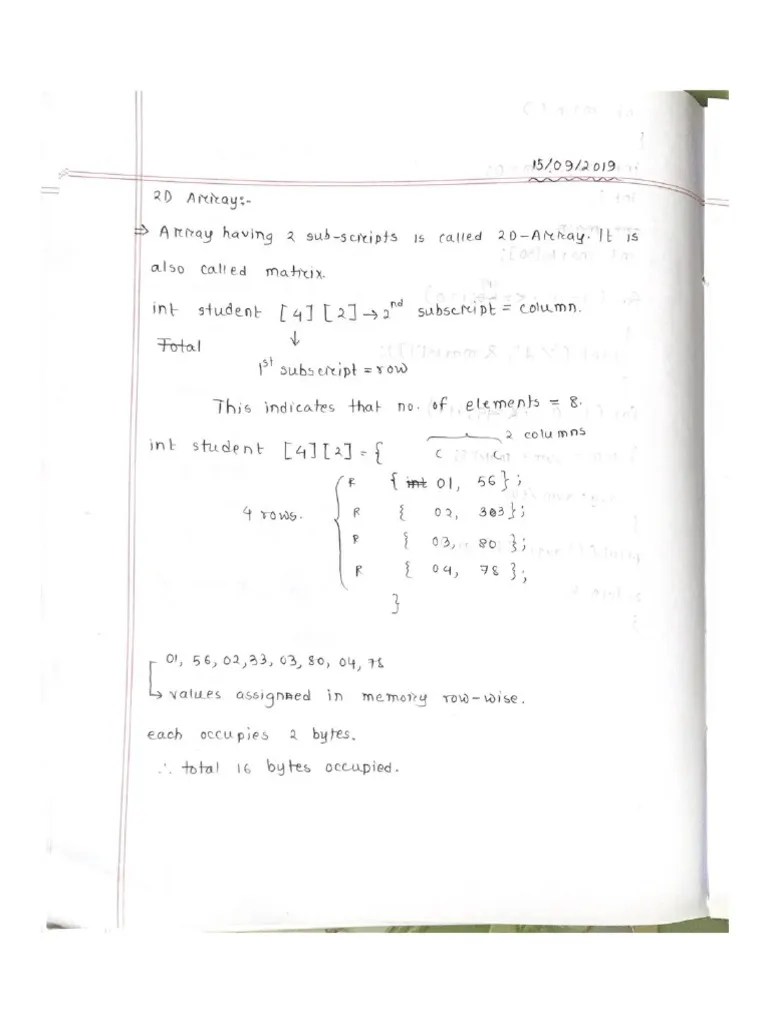 15/09/2019
2D Array:-
⇒ Array having 2 sub-scripts is called 2D-Array. It is
also called matrix.
int student [4][2] → 2nd subscript = column.
Total ↓
1st subscript = row
This indicates that no. of elements = 8.
2 columns
int student [4][2] = { C C
R { int 01, 56};
4 rows. R { 02, 303};
R { 03, 80 };
R { 04, 78 };
}
01, 56, 02, 33, 03, 80, 04, 78
↳ values assigned in memory row-wise.
each occupies 2 bytes.
∴ total 16 bytes occupied.